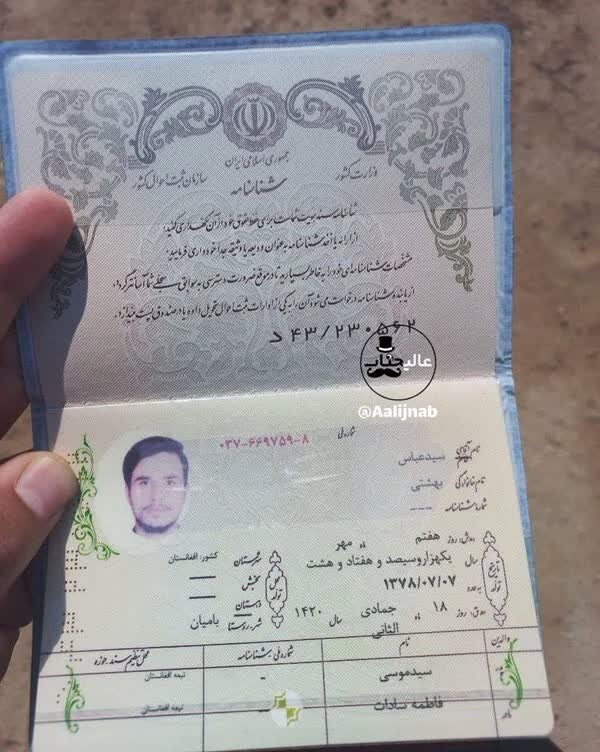 جمهوری اسلامی ایران
وزارت کشور
سازمان ثبت احوال کشور
شناسنامه
شناسنامه سند هویت شماست برای حفظ حقوق خود از آن نگهداری کنید.
از ارائه یا اخذ شناسنامه به عنوان ودیعه یا وثیقه جداً خودداری فرمایید.
مشخصات شناسنامه‌ای خود را به خاطر بسپارید تا در موقع ضرورت دسترسی به سوابق سجلی شما آسانتر گردد.
د ۴۳/۲۳۰۵۶۲
عالیجناب
@Aalijnab
شماره ملی ۰۳۷-۶۶۹۷۵۹-۸
نام آقای سیدعباس
نام خانوادگی بهشتی
شماره شناسنامه ---
تاریخ تولد
ه‍.ش: روز هفتم ماه مهر
سال یکهزاروسیصد و هفتاد و هشت
به عدد ۱۳۷۸/۰۷/۰۷
ه‍.ق: روز ۱۸ ماه جمادی الثانی سال ۱۴۲۰
محل تولد
شهرستان کشور: افغانستان
بخش —
دهستان —
شهر، روستا بامیان
والدین نام شماره ملی - شناسنامه محل تنظیم سند - حوزه
پدر سیدموسی - تبعه افغانستان
مادر فاطمه سادات - تبعه افغانستان